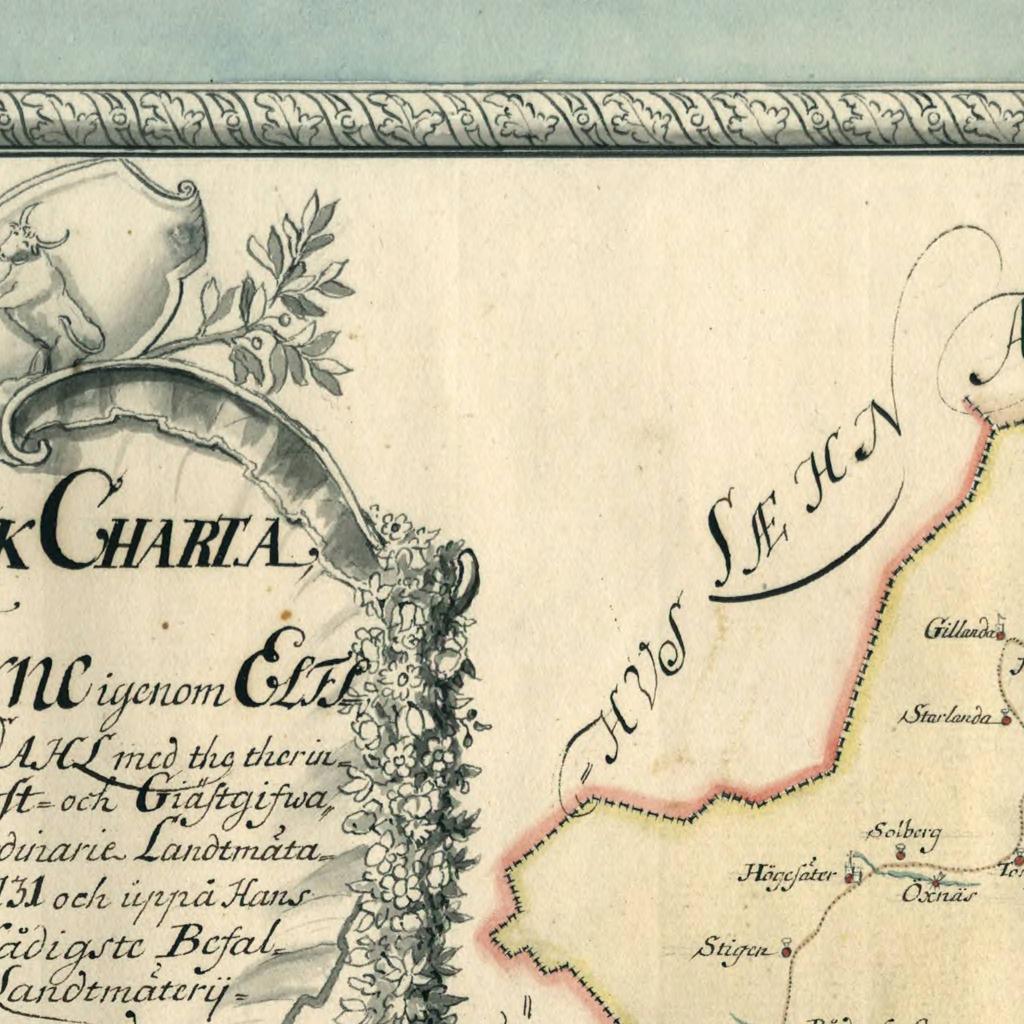 K CHARTA
igenom ELFS=
med the therin=
ft=och Giästgifwa,,
dinarie Landtmäta=
131 och uppå Hans
ådigste Befal=
Landtmäterij=
HUS LÆHN
A
Gillanda
Starlanda
Solberg
Högesäter
Öxnäs
Stigen